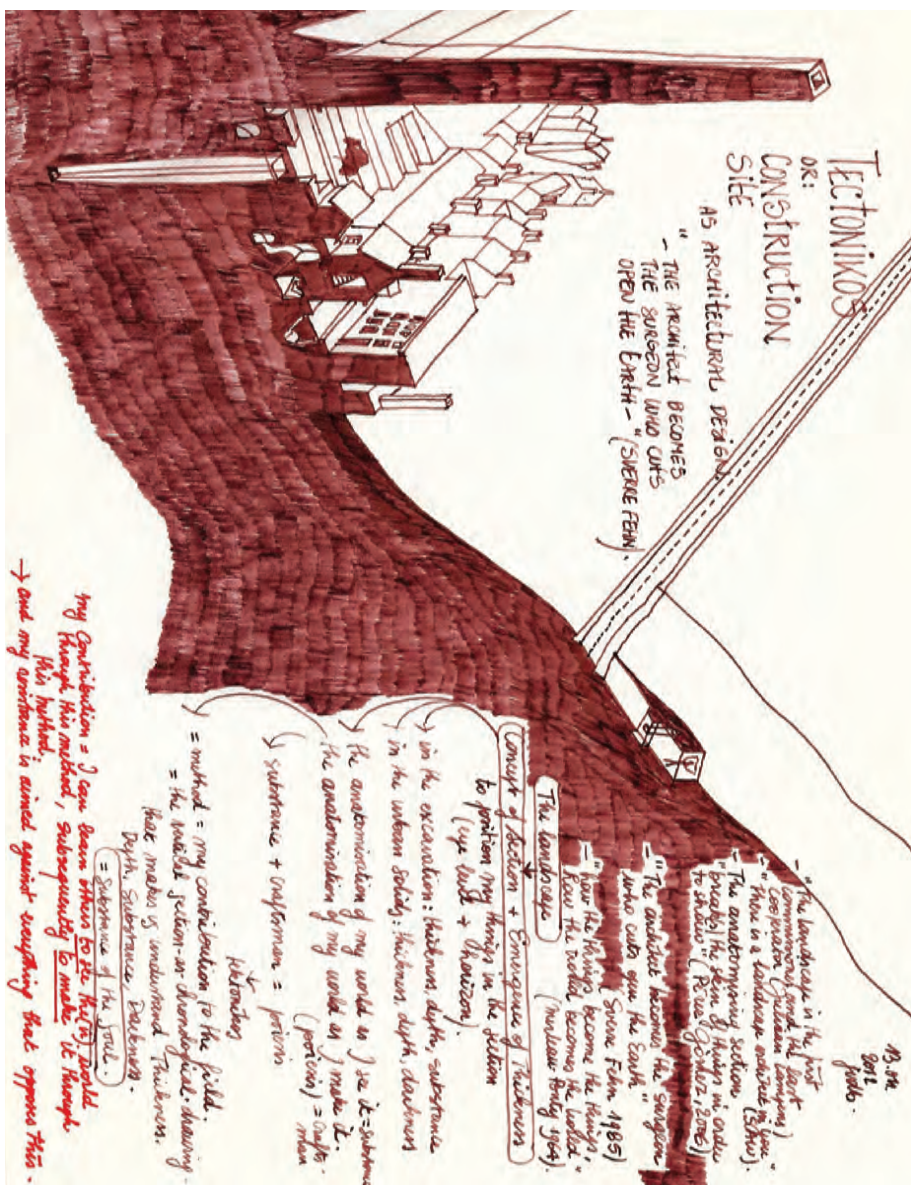 TECTONIKOS
OR:
CONSTRUCTION
SITE
AS ARCHITECTURAL DESIGN
" - THE ARCHITECT BECOMES
THE SURGEON WHO CUTS
OPEN THE EARTH - " (SVERRE FEHN).
2012
- "The landscape is the first
commons and the largest
cooperation
- "There is a landscape outside in you"
- "The anatomising section
breaks the skin of things in order
to draw" 2006)
- "The architect becomes the surgeon
who cuts open the Earth"
Sverre Fehn 1985)
- "how the things become the things,
how the world becomes the world"
(Merleau Ponty 1964).
The landscape
Concept of Section + Emergence of Thickness
to position my things in the section
(eye level + horizon).
in the excavation: thickness, depth, substance
in the urban solids: thickness, depth, darkness
the anatomisation of my world as I see it =
the anatomisation of my world as I make it.
substance + craftsman = poiesis
(poiesis) =
= method = my contribution to the field.
= the world section-as drawing
that makes us understand Thickness.
Depth, Substance, Darkness.
= Substance of the Soul.
my contribution = I can learn others to see this world
through this method, subsequently to make it through
this method;
→ and my resistance is aimed against everything that opposes this.